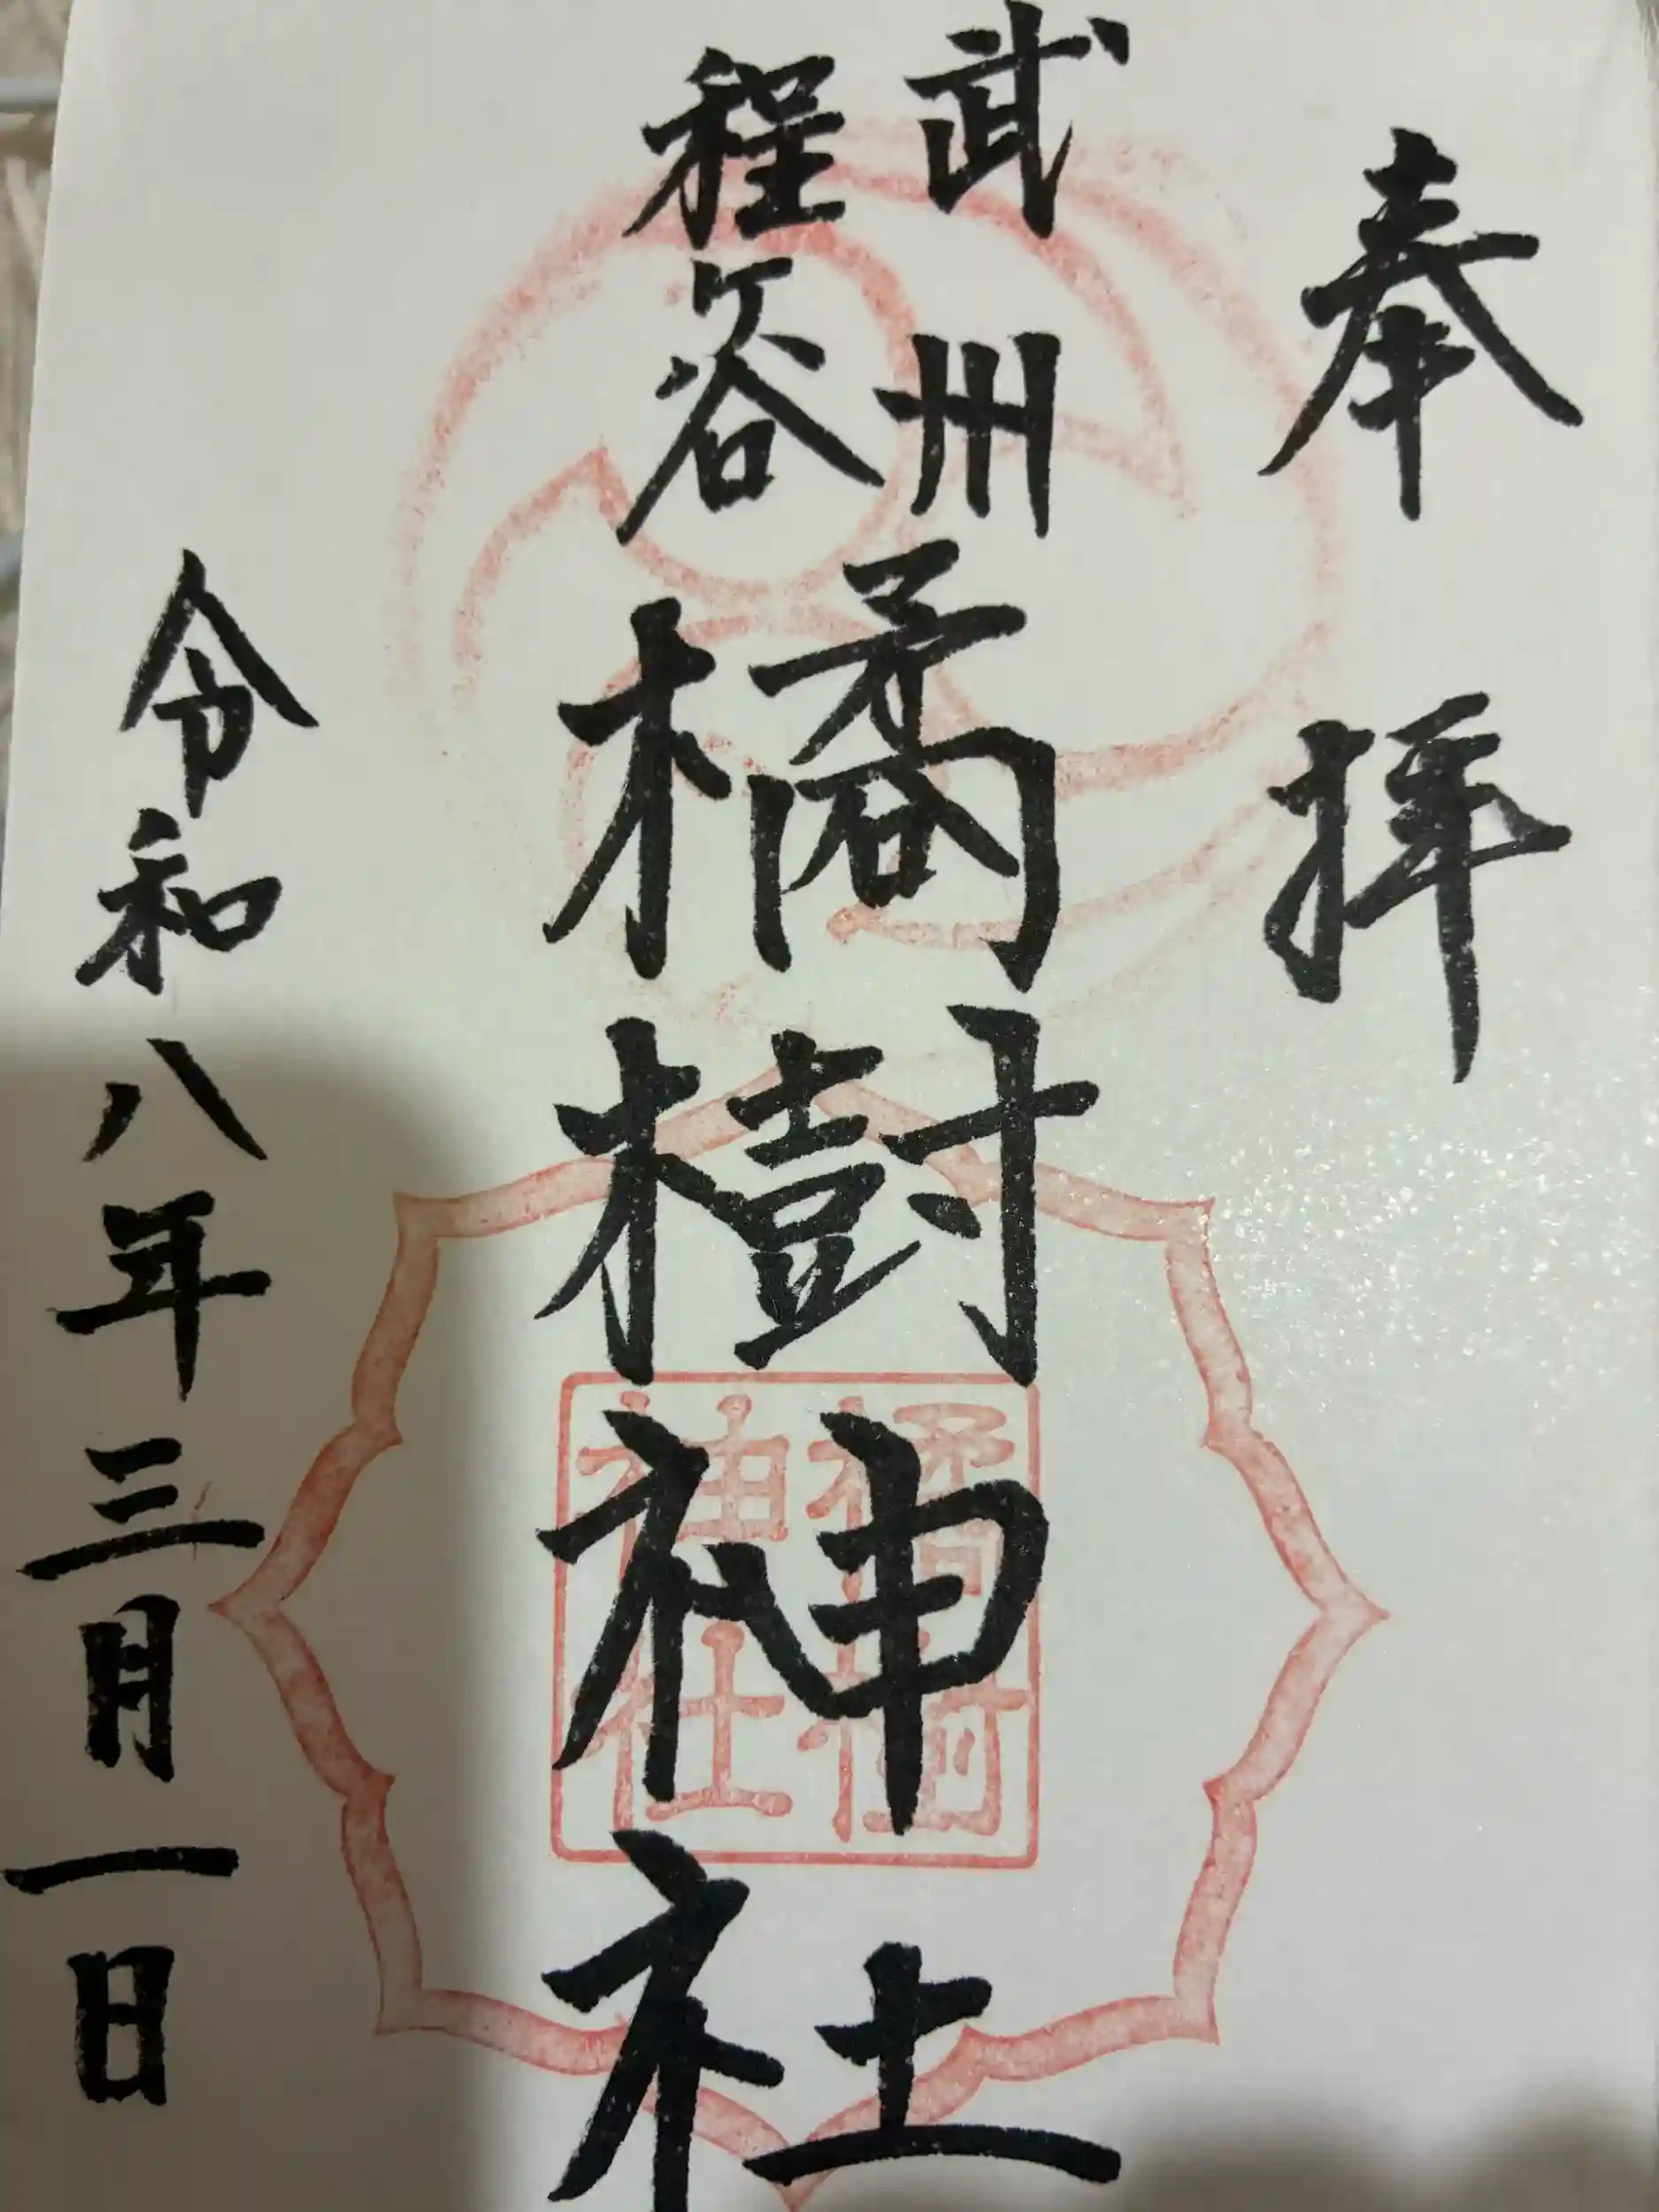 奉拝
武州
程ケ谷
橘樹神社
令和八年三月一日
橘樹
神社